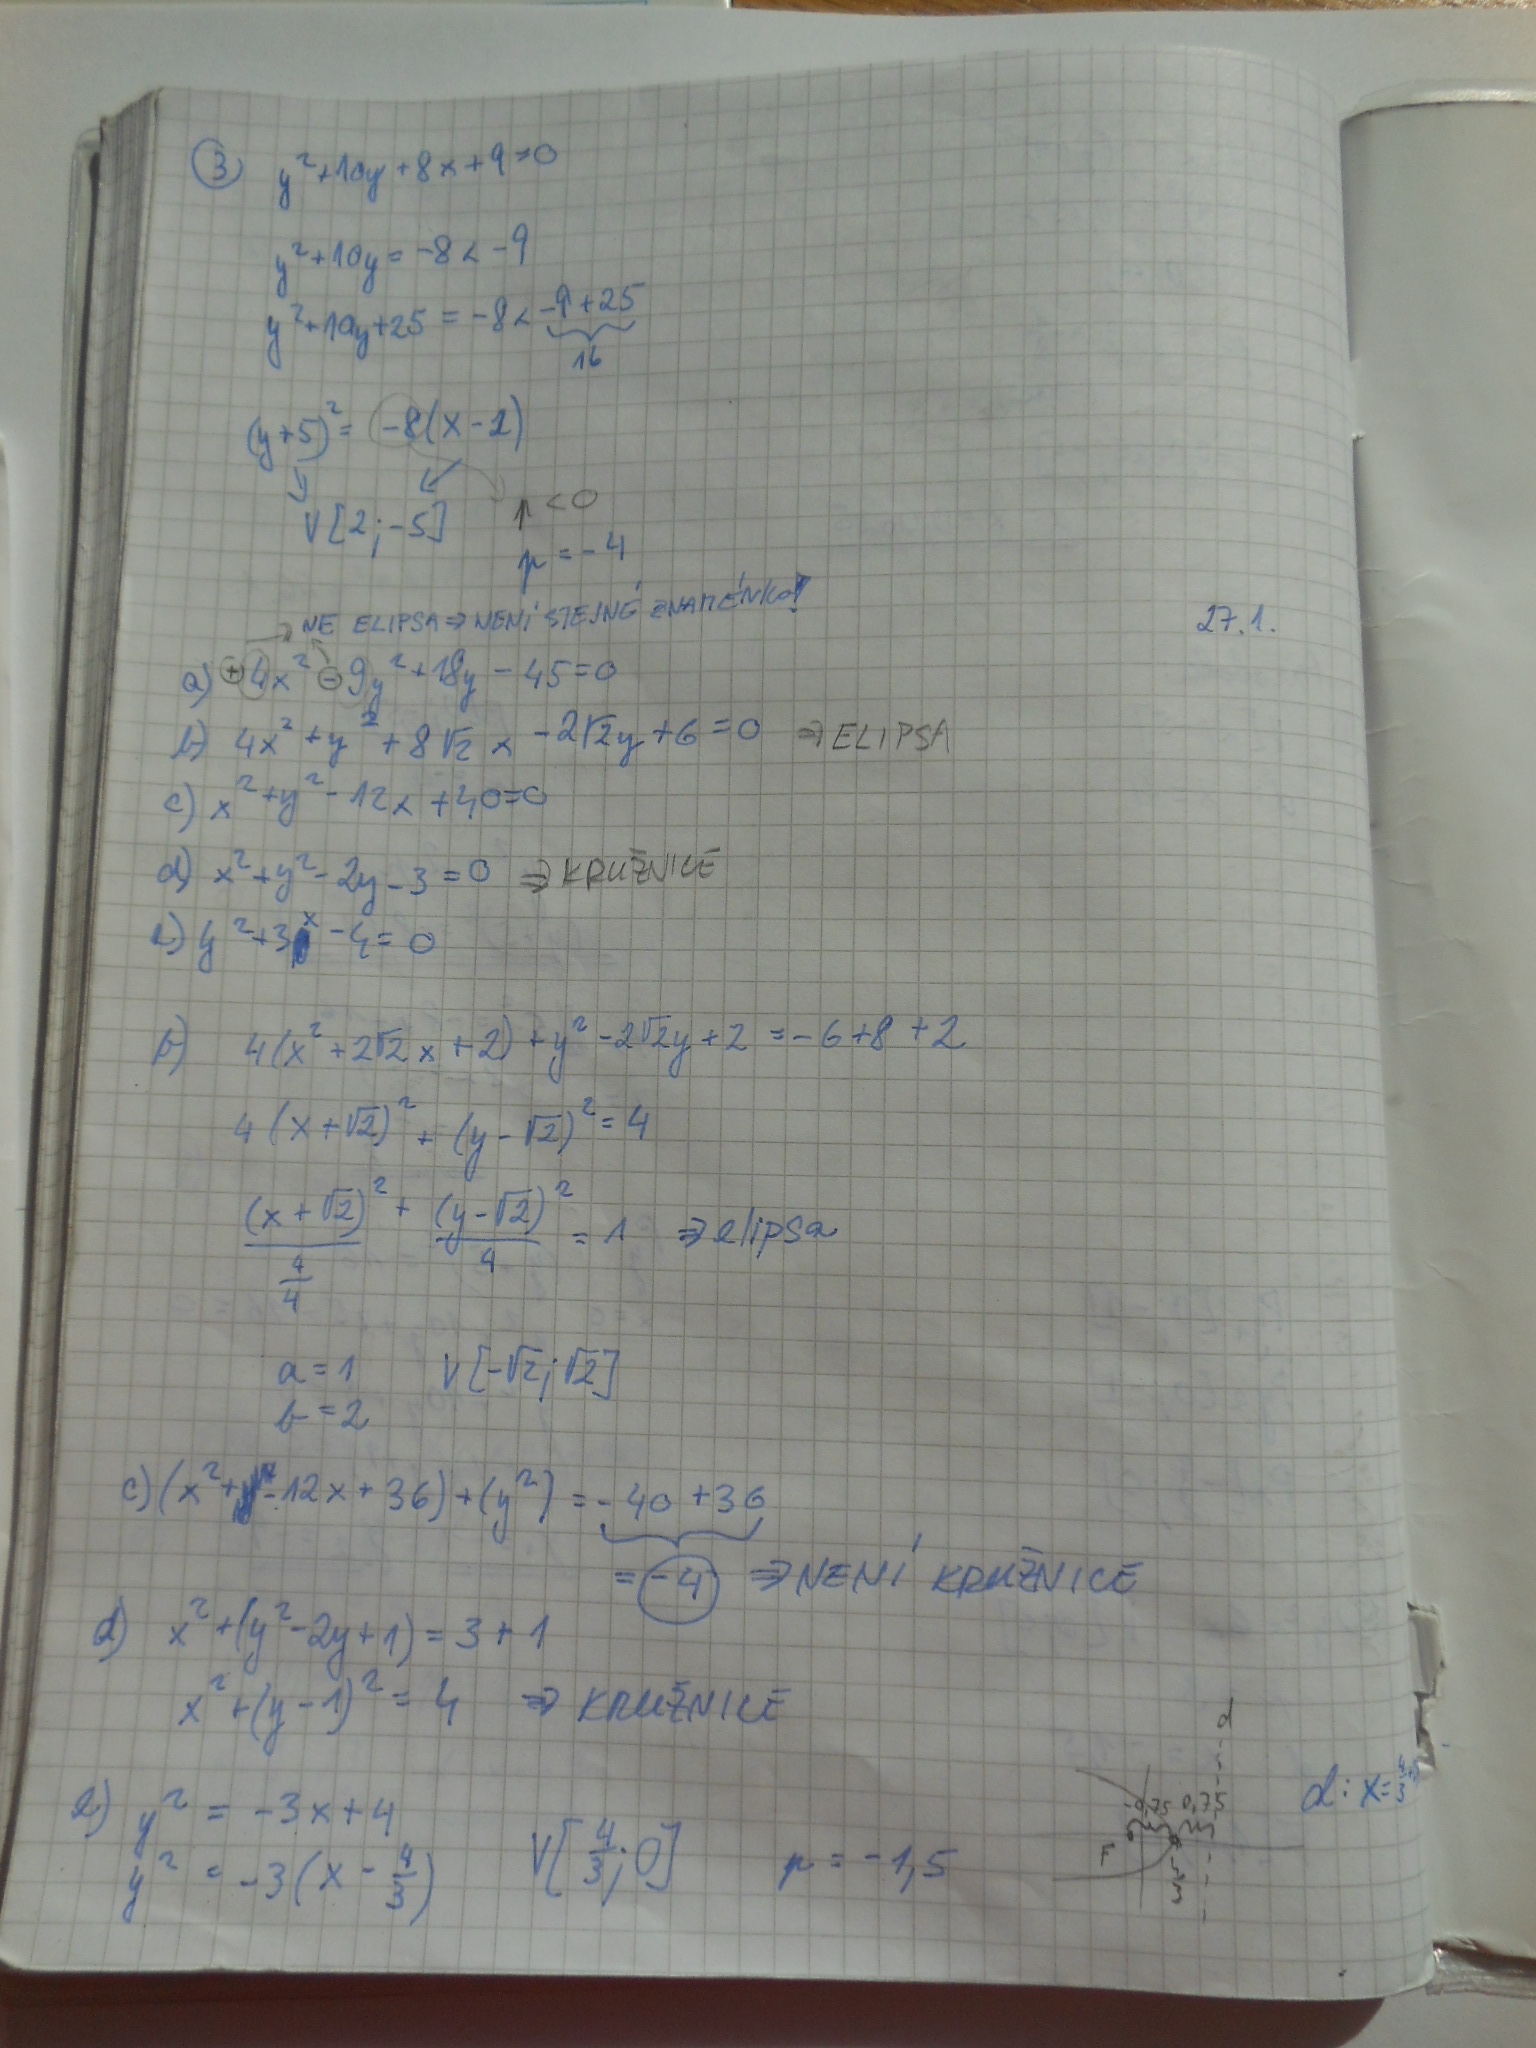 ③ y²+10y+8x+9=0
y²+10y = -8x -9
y²+10y+25 = -8x -9+25
16
(y+5)² = -8(x-2)
V[2;-5] p<0
p = -4
NE ELIPSA ⇒ NENÍ STEJNÉ ZNAMÉNKO!
27.1.
a) +4x² - 9y² + 18y - 45=0
b) 4x² + y² + 8√2 x - 2√2y + 6 = 0 ⇒ ELIPSA
c) x² + y² - 12x + 40=0
d) x² + y² - 2y - 3 = 0 ⇒ KRUŽNICE
e) y² + 3x - 4 = 0
b) 4(x² + 2√2 x + 2) + y² - 2√2y + 2 = -6+8+2
4(x+√2)² + (y-√2)² = 4
(x+√2)²/(4/4) + (y-√2)²/4 = 1 ⇒ elipsa
a = 1 V[-√2;√2]
b = 2
c) (x² - 12x + 36) + (y²) = -40 + 36
= -4 ⇒ NENÍ KRUŽNICE
d) x² + (y² - 2y + 1) = 3 + 1
x² + (y-1)² = 4 ⇒ KRUŽNICE
d
e) y² = -3x + 4
-0,75 0,75
d: x=
y² = -3(x - 4/3) V[4/3;0] p = -1,5
F